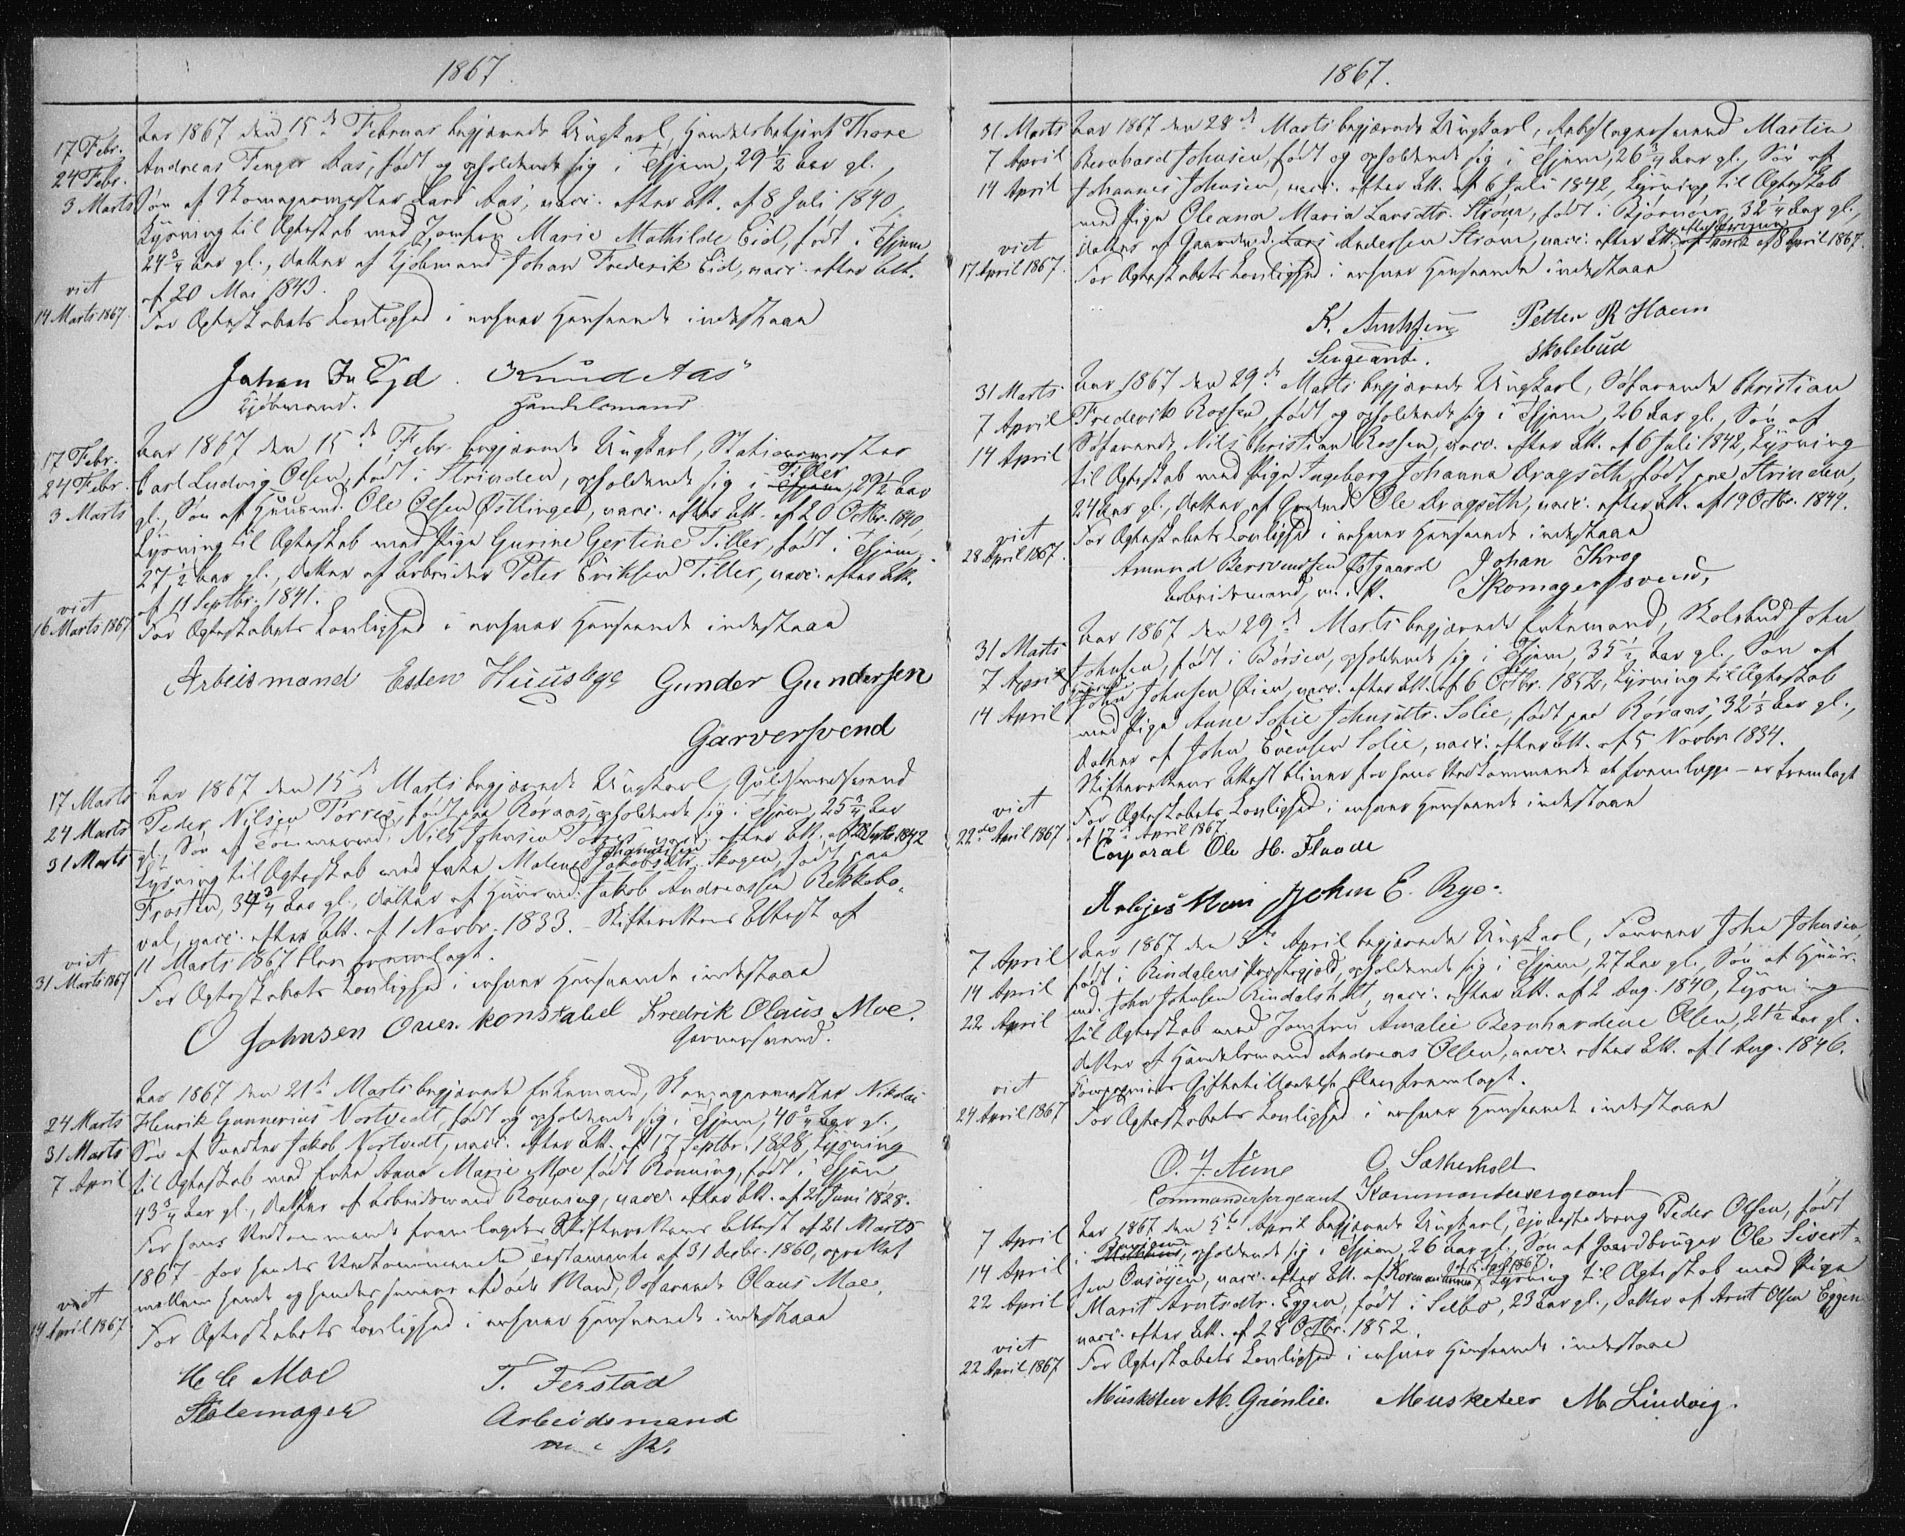 1867.
17 Febr.
24 Febr.
3 Marts
viet
14 Marts 1867.
Aar 1867 den 15de Februar begjærede Ungkarl, Handelsbetjent Thore
Andreas Aas, født og opholdende sig i Thjem, 29 1/2 Aar gl.,
Søn af Skomagermester Lars Aas, vacc. efter Att. af 8 Juli 1840,
Lysning til Ægteskab med Jomfru Marie Mathilde Eid, født i Thjem
24 3/4 Aar gl., Datter af Kjøbmand Johan Frederik Eid, vacc. efter Att.
af 20 Mai 1843.
For Ægteskabets Lovlighed i enhver Henseende indestaae
Johan Fr Eyd. Knud Aas
Kjøbmand. Handelsmand
17 Febr.
24 Febr.
3 Marts
viet
16 Marts 1867
Aar 1867 den 15de Febr. begjærede Ungkarl, Stationsmester
Carl Ludvig Olsen, født i Strinden, opholdende sig i Tiller, 29 1/2 Aar
gl., Søn af Huusmd. Ole Olsen Østlingen, vacc. efter Att. af 20 Octbr. 1840,
Lysning til Ægteskab med Pige Gurine Gertine Tiller, født i Thjem
27 1/2 Aar gl., Datter af Arbeider Peter Eriksen Tiller, vacc. efter Att.
af 11 Septbr. 1841.
For Ægteskabets Lovlighed i enhver Henseende indestaae
Arbeismand Esten Gunder Gundersen
Garversvend
17 Marts
24 Marts
31 Marts
viet
31 Marts 1867
Aar 1867 den 15de Marts begjærede Ungkarl, Guldsmedsvend
Peder Nilsen Torres, født paa Røraas, opholdende sig i Thjem, 25 3/4 Aar
gl., Søn af Tømmermd. Nils Johnsen Torres, vacc. efter Att. af 1842
Lysning til Ægteskab med Enke Malene Jakobsdtr. Skogen, født paa
Frosten, 34 3/4 Aar gl., Datter af Huusmd. Jakob Andreassen Rekkebo-
val, vacc. efter Att. af 1 Novbr. 1833. – Skifterettens Attest af
11 Marts 1867 blev fremlagt.
For Ægteskabets Lovlighed i enhver Henseende indestaae
O Johnsen Over konstabel Fredrik Olaus Moe.
Garversvend.
24 Marts
31 Marts
7 April
viet
14 April 1867.
Aar 1867 den 21de Marts begjærede Enkemand, Skomagermester Nikolai
Henrik Gunnerius Nortvedt, født og opholdende sig i Thjem, 40 3/4 Aar gl.,
Søn af Snedker Jakob Nortvedt, vacc. efter Att. af 17 Septbr. 1828, Lysning
til Ægteskab med Enke Anna Marie Moe født Rønning, født i Thjem
43 3/4 Aar gl., Datter af Arbeidsmand Rønning, vacc. efter Att. af 21 Juni 1828.
For hans Vedkommende fremlagdes Skifterettens Attest af 21 Marts
1867 – for hendes Vedkommende Testamente af 31 Decbr. 1860, oprettet
mellem hende og hendes senere afdøde Mand, Søfarende Olaus Moe.
For Ægteskabets Lovlighed i enhver Henseende indestaae
H C Moe T. Ferstad
Stolemager Arbeidsmand
m. i P.
1867.
31 Marts
7 April
14 April
viet
17 April 1867.
Aar 1867 den 28de Marts begjærede Ungkarl, Martin
Bernhard Johnsen, født og opholdende sig i Thjem, 26 3/4 Aar gl., Søn af
Johannes Johnsen, vacc. efter Att. af 6 Juli 1842, Lysning til Ægteskab
med Pige Oleana Maria Larsdtr. Strøm, født i Bjørnør, 32 1/4 Aar gl.,
Datter af Gaardmd. Lars Andersen Strøm, vacc. efter April 1867.
For Ægteskabets Lovlighed i enhver Henseende indestaae
K. Arntsen Petter R Haem
Sergeant. Skolebud
31 Marts
7 April
14 April
viet
28 April 1867.
Aar 1867 den 29de Marts begjærede Ungkarl, Søfarende Christian
Frederik Rossen, født og opholdende sig i Thjem, 26 Aar gl., Søn af
Søfarende Nils Christian Rossen, vacc. efter Att. af 6 Juli 1842, Lysning
til Ægteskab med Pige Ingeborg Johanna Dragseth, født paa Strinden,
24 Aar gl., Datter af Gaardmd. Ole Dragseth, vacc. efter Att. af 19 Octbr. 1844.
For Ægteskabets Lovlighed i enhver Henseende indestaae
Amund Bersvendsen Østgaard Johan Krog
Arbeidsmand, m. i P. Skomagersvend,
31 Marts
7 April
14 April
viet
22de April 1867.
Aar 1867 den 29de Marts begjærede Enkemand, Skolebud John
Johnsen, født i Børsen, opholdende sig i Thjem, 35 1/2 Aar gl., Søn af
John Johnsen Øien, vacc. efter Att. af 6 Octbr. 1852, Lysning til Ægteskab
med Pige Anne Sofie Johnsdtr. Solie, født paa Røraas, 32 1/2 Aar gl.,
Datter af John Evensen Solie, vacc. efter Att. af 5 Novbr. 1834.
Skifterettens Attest bliver for hans Vedkommende at fremlægge – er fremlagt
For Ægteskabets Lovlighed i enhver Henseende indestaae
af 17de April 1867.
Corporal Ole H. Flaade
John E. Rye.
7 April
14 April
22 April
viet
24 April 1867
Aar 1867 den 3de April begjærede Ungkarl, Fourer John Johnsen,
født i Rindalens Præstegjeld, opholdende sig i Thjem, 27 Aar gl., Søn af Huus-
md. John Johnsen Rindalsholt, vacc. efter Att. af 2 Aug. 1840, Lysning
til Ægteskab med Jomfru Amalie Bernhardine Olsen, 21 1/2 Aar gl.
Datter af Handelsmand Andreas Olsen, vacc. efter Att. af 1 Aug. 1846.
Compagniets Giftetilladelse blev fremlagt.
For Ægteskabets Lovlighed i enhver Henseende indestaae
O. J. Aune O. Sætherholt
Commandersergeant Kommandersergeant
7 April
14 April
22 April
viet
22 April 1867
Aar 1867 den 5te April begjærede Ungkarl, Peder Olsen, født
i opholdende sig i Thjem, 26 Aar gl., Søn af Gaardbruger Ole Sivert-
sen Onsøien, vacc. efter Att. af Lysning til Ægteskab med Pige
Marit Arntsdtr. Eggen, født i Selbo, 23 Aar gl., Datter af Arnt Olsen Eggen
vacc. efter Att. af 28 Octbr. 1852.
For Ægteskabets Lovlighed i enhver Henseende indestaae
Musketeer M. Grønlie. Musketeer M. Lindvig.